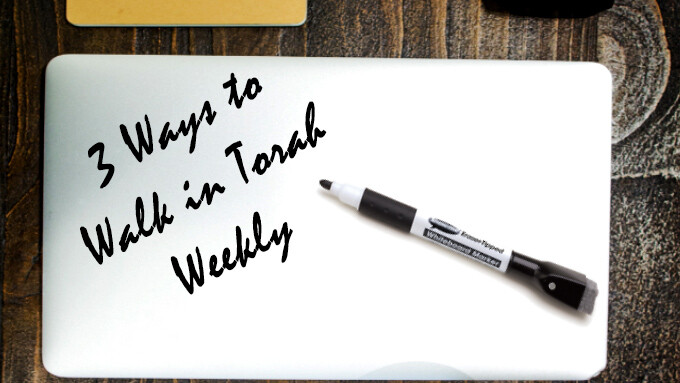 3 Ways to
Walk in Torah
Weekly
Eraser-Tipped
Whiteboard Marker